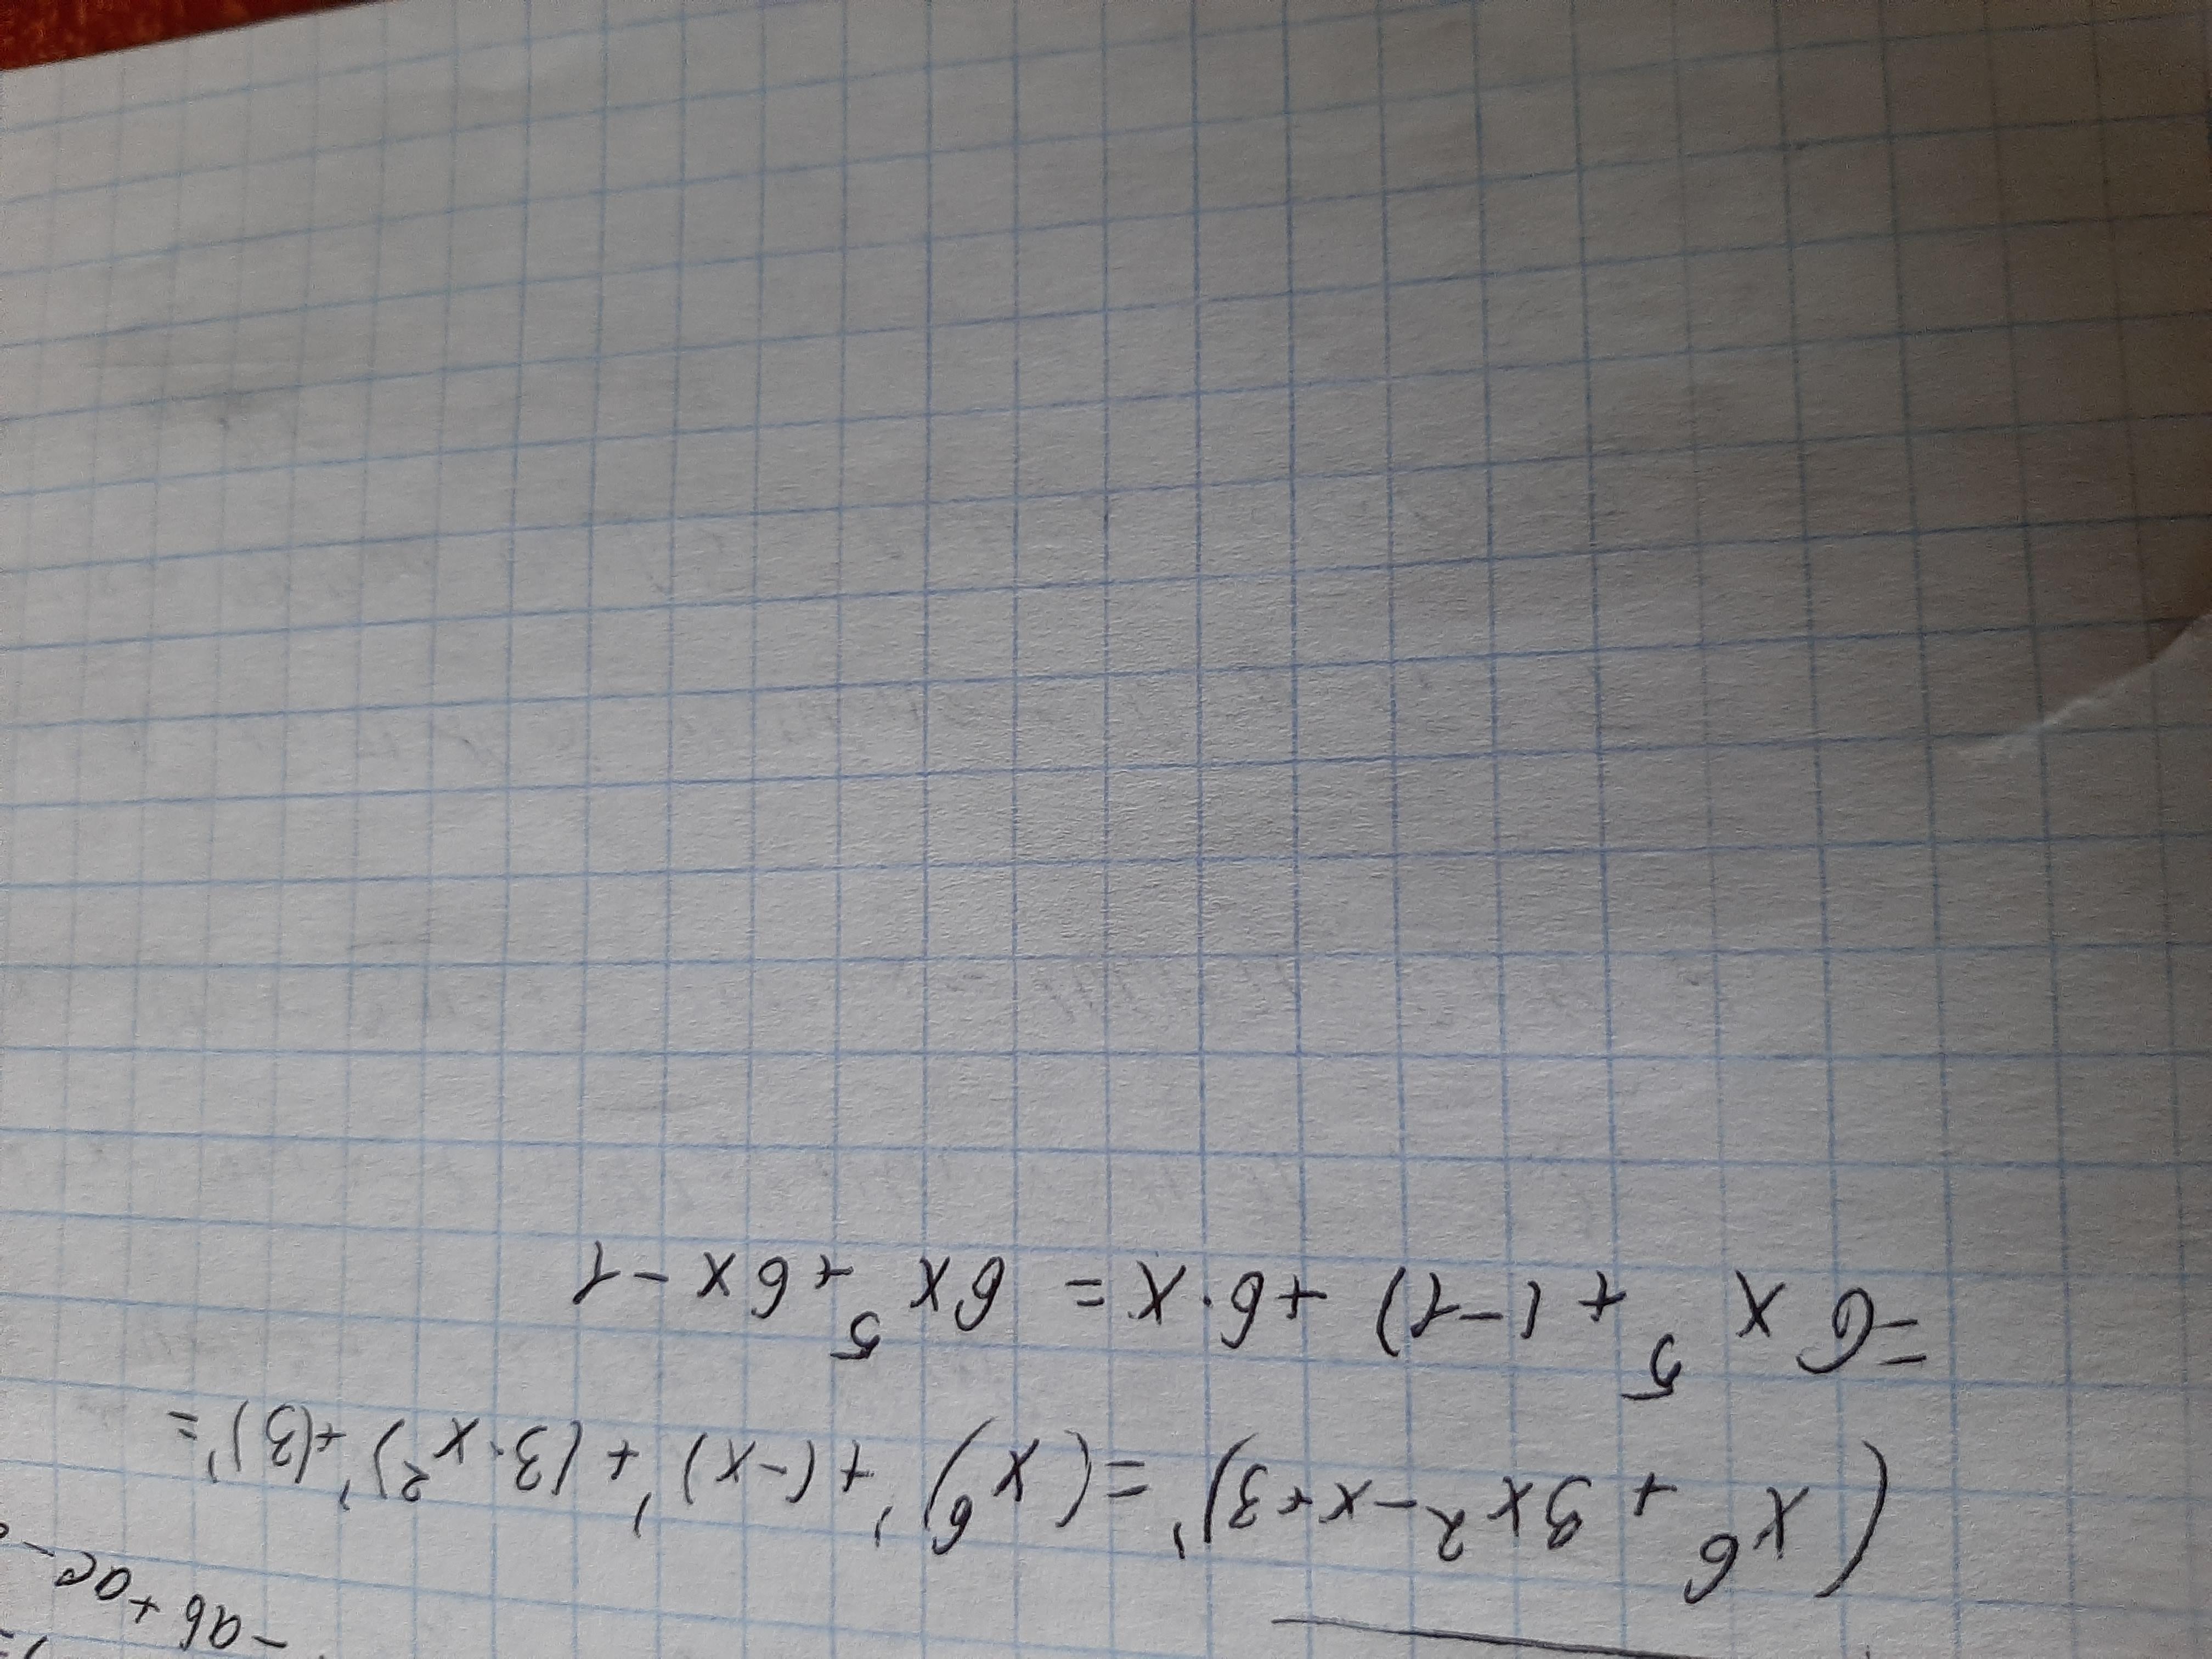 - ab + ac -
(x⁶ + 3x² - x + 3)' = (x⁶)' + (-x)' + (3·x²)' + (3)' =
= 6x⁵ + (-1) + 6·x = 6x⁵ + 6x - 1